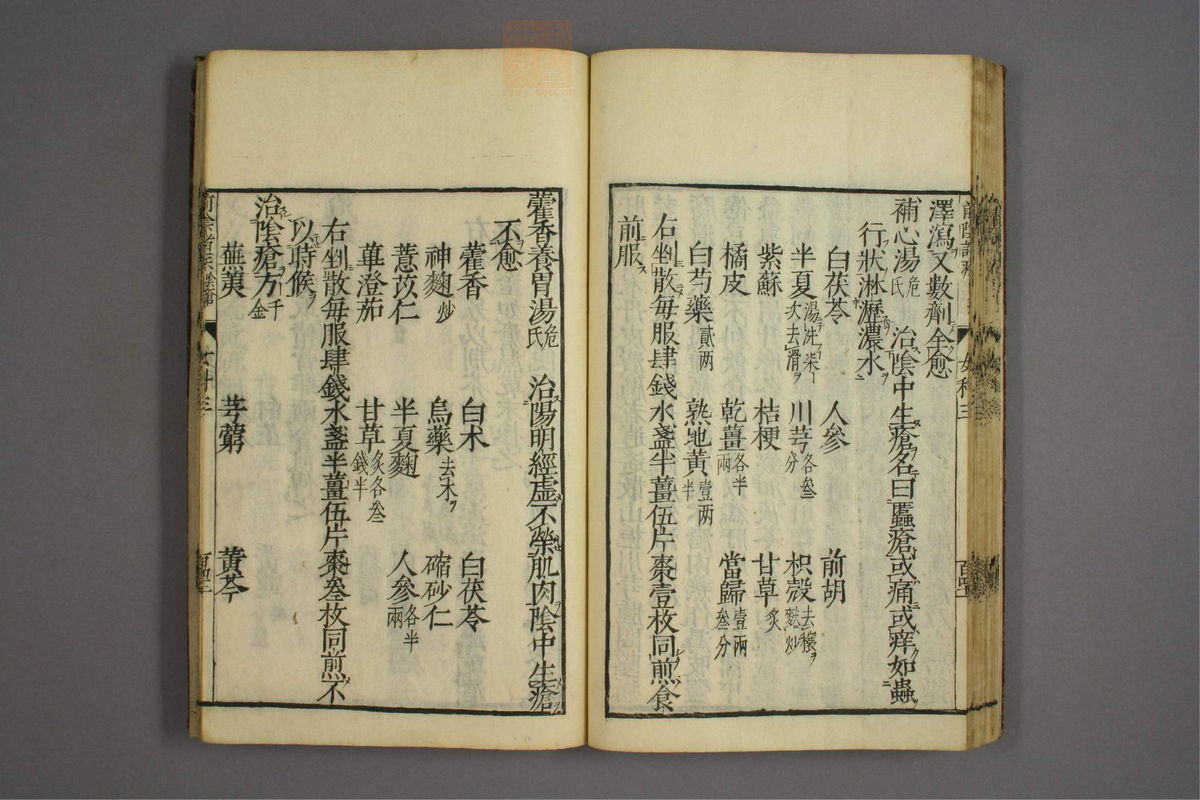 澤瀉又數劑全愈
補心湯 危氏 治陰中生瘡名曰䘌瘡或痛或痒如蟲
行狀淋瀝濃水
白茯苓 人參 前胡
半夏 湯洗柒次去滑 川芎 各叄分 枳殼 去穰麩炒
紫蘇 桔梗 甘草 炙
橘皮 乾薑 各半兩 當歸 壹兩叄分
白芍藥 貳兩 熟地黃 壹兩半
右剉散每服肆錢水盞半薑伍片棗壹枚同煎食
前服
藿香養胃湯 危氏 治陽明經虛不榮肌肉陰中生瘡
不愈
藿香 白朮 白茯苓
神麴 炒 烏藥 去木 縮砂仁
薏苡仁 半夏麴 人參 各半兩
蓽澄茄 甘草 炙各叄錢半
右剉散每服肆錢水盞半薑伍片棗叄枚同煎不
以時候
治陰瘡方 千金
蕪荑 芎藭 黃芩